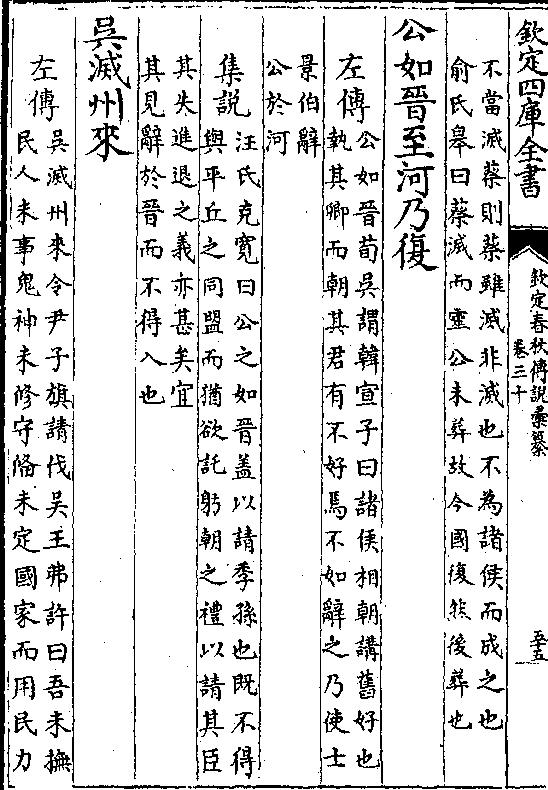 欽定四庫全書
欽定春秋傳說彙纂
卷三十
五十五
不當滅蔡則蔡雖滅非滅也不為諸侯而成之也
俞氏皋曰蔡滅而靈公未葬故今國復然後葬也
公如晉至河乃復
左傳
公如晉荀吳謂韓宣子曰諸侯相朝講舊好也
執其卿而朝其君有不好焉不如辭之乃使士
景伯辭
公於河
集說
汪氏克寬曰公之如晉蓋以請季孫也既不得
與平丘之同盟而猶欲託躬朝之禮以請其臣
其失進退之義亦甚矣宜
其見辭於晉而不得入也
吳滅州來
左傳
吳滅州來令尹子旗請伐吳王弗許曰吾未撫
民人未事鬼神未修守備未定國家而用民力